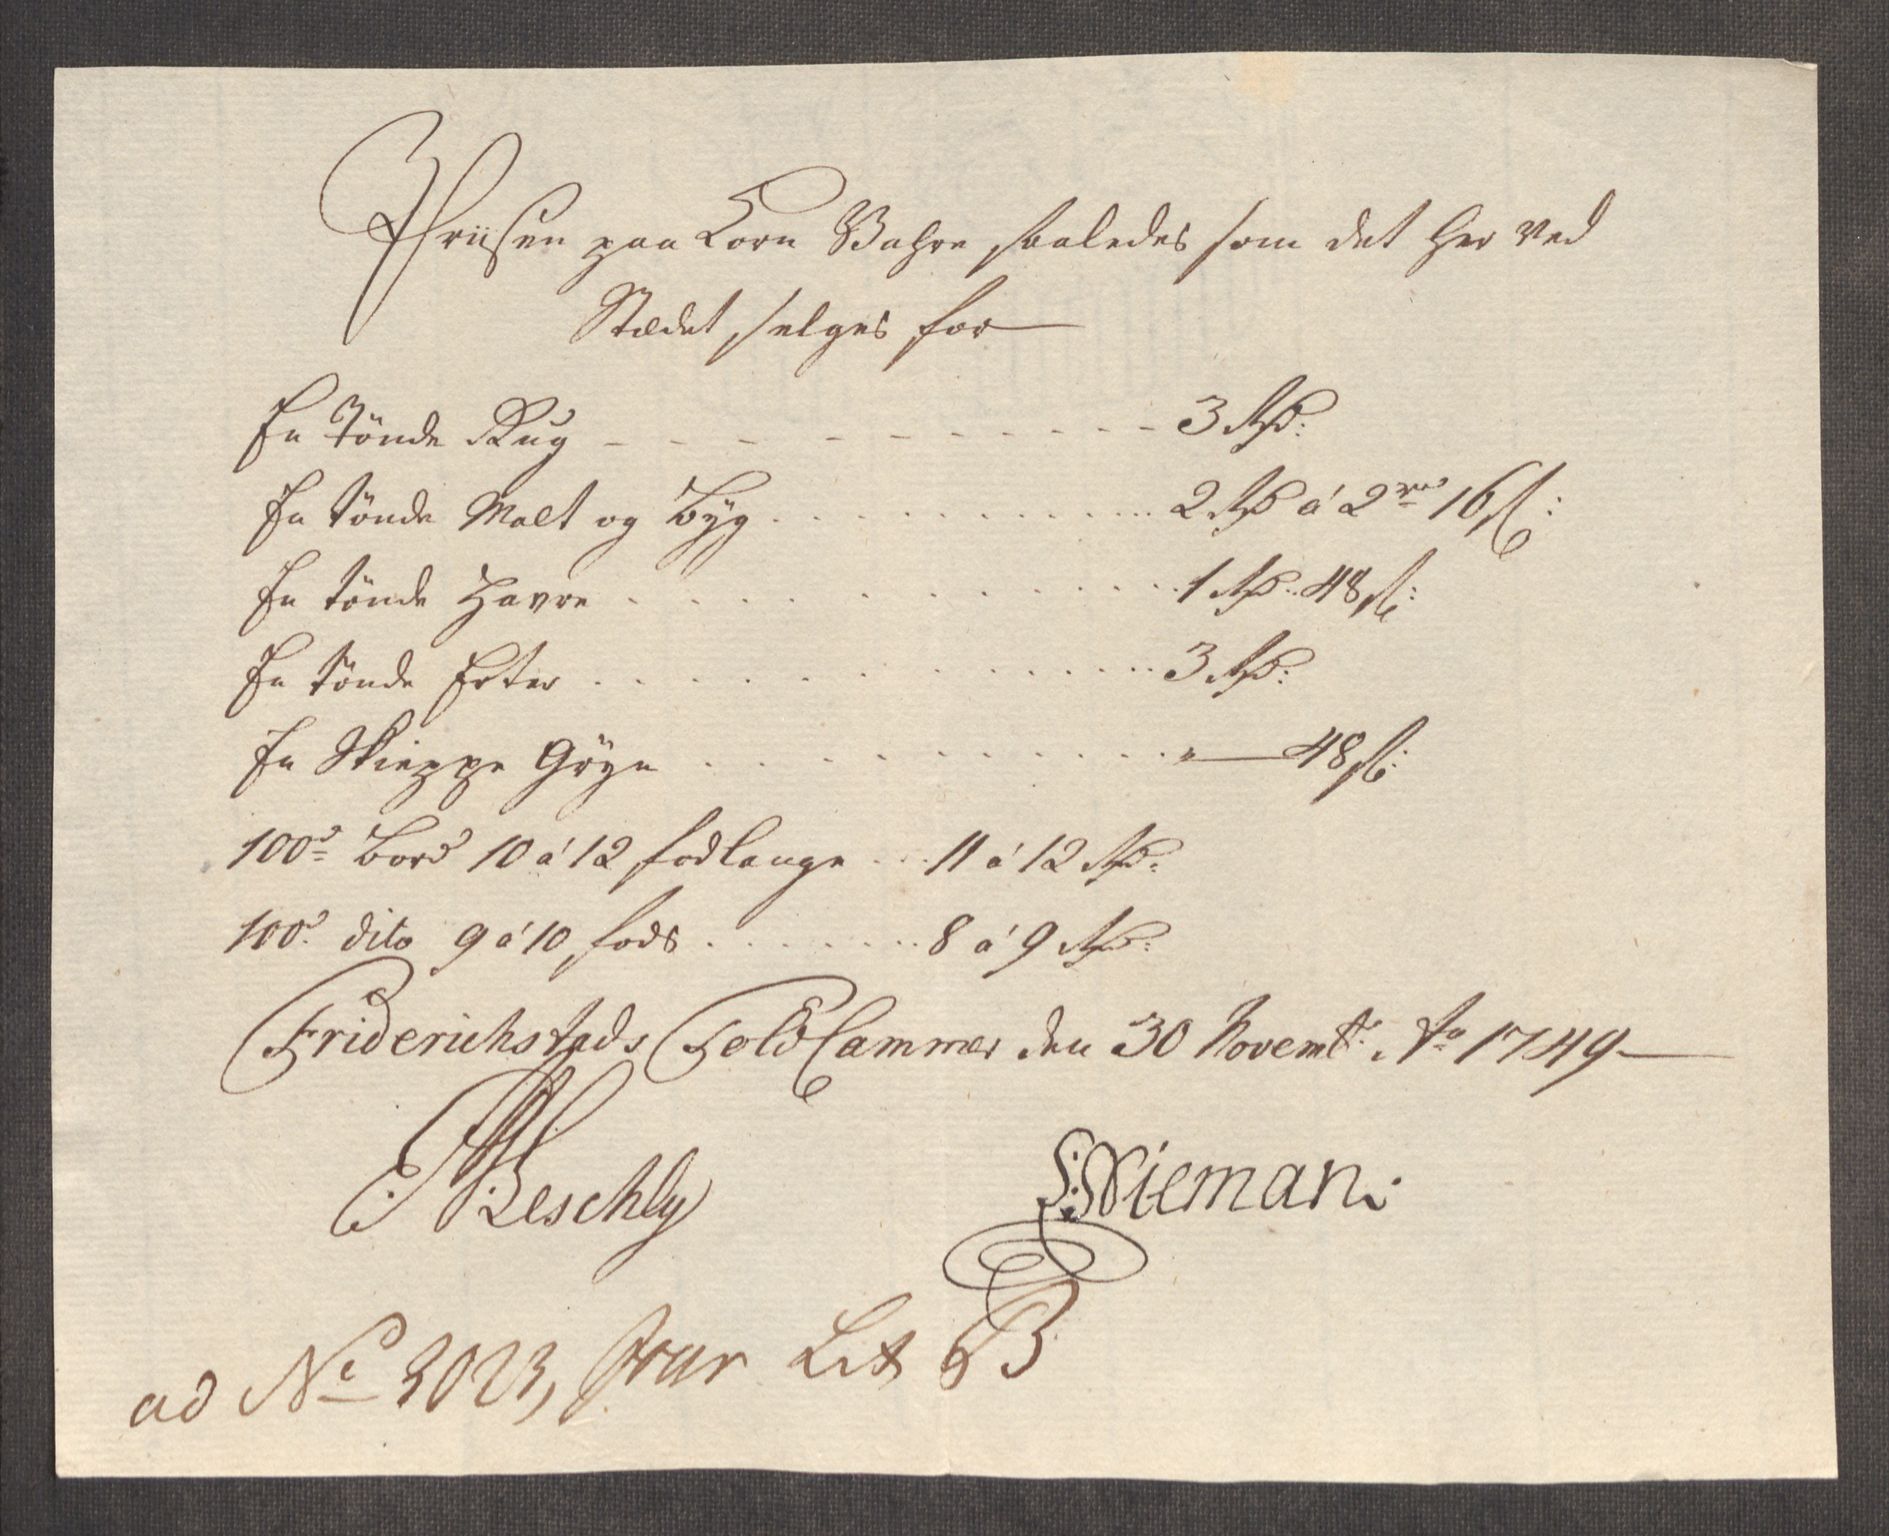 Priisen paa Korn Vahre saaledes som det her ved
Stædet selges for
En Tönde Rug - - - - - - - - - 3 Rd:
En tönde Malt og Byg . . . . . . . . . 2 Rd á 2 rd 16 s:
En tönde Havre . . . . . . . . . 1 Rd. 48 s:
En tönde Erter . . . . . . . . . 3 Rd:
En Skieppe Gryn . . . . . . . . . " — 48 s:
100d Bord 10 á 12 fod lange . . . 11 á 12 Rd:
100d dito 9 á 10 fods . . . . . . . . 8 á 9 Rd:
Friderichstads Told Cammer den 30 Novemb. Ao 1749
Beschly
S: Wieman.
ad No 3023, Lit B